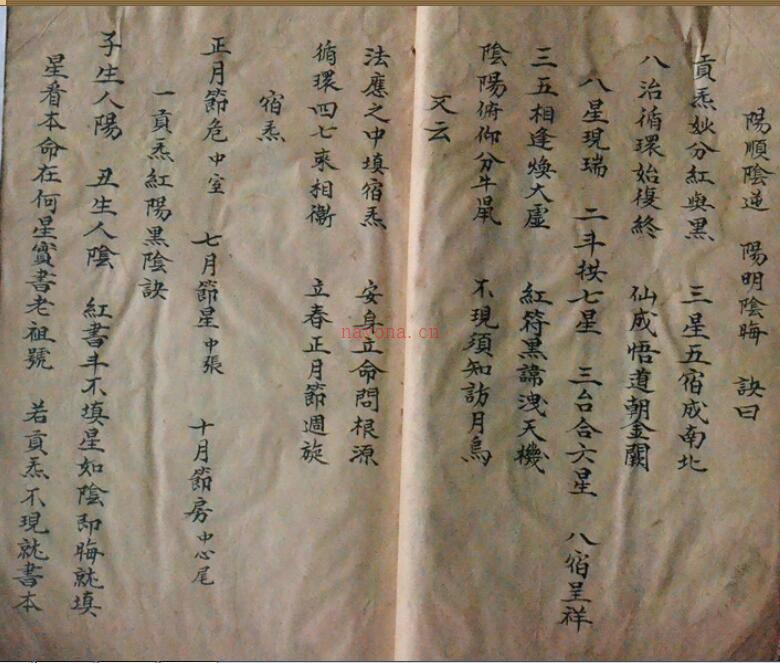 陽順陰逆 陽明陰晦 訣曰
貢炁妙分紅與黑 三星五宿成南北
八治循環始復終 仙成悟道朝金闕
八星現瑞 二斗拱七星 三台合六星 八宿呈祥
三五相逢煥大虛 紅符黑諱洩天機
陰陽俯仰分牛鼠 不現須知訪月烏
又云
法應之中填宿炁 安身立命問根源
循環四七來相衛 立春正月節週旋
宿炁
正月節危中室 七月節星中張 十月節房中心尾
一貢炁紅陽黑陰訣
子生人陽 丑生人陰 紅書斗不填星如陰即晦就填
星看本命在何星實書老祖號 若貢炁不現就書本
nayona.cn